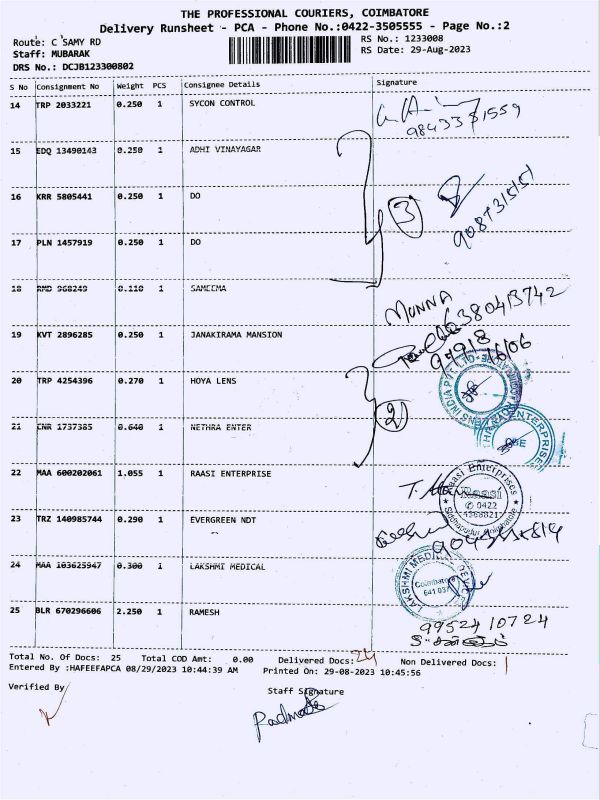 THE PROFESSIONAL COURIERS, COIMBATORE
Delivery Runsheet - PCA - Phone No.:0422-3505555 - Page No.:2
Route: C SAMY RD
RS No.: 1233008
Staff: MUBARAK
RS Date: 29-Aug-2023
DRS No.: DCJB123300802
S No Consignment No Weight PCS Consignee Details Signature
14 TRP 2033221 0.250 1 SYCON CONTROL
15 EDQ 13490143 0.250 1 ADHI VINAYAGAR
16 KRR 5805441 0.250 1 DO
3
17 PLN 1457919 0.250 1 DO
18 RMD 968249 0.110 1 SAMEEMA
MUNNA
19 KVT 2896285 0.250 1 JANAKIRAMA MANSION
20 TRP 4254396 0.270 1 HOYA LENS
2
21 CNR 1737385 0.640 1 NETHRA ENTER
22 MAA 600202061 1.055 1 RAASI ENTERPRISE
Raasi Enterprises
Raasi
0422
23 TRZ 140985744 0.290 1 EVERGREEN NDT
24 MAA 103625947 0.300 1 LAKSHMI MEDICAL
LAKSHMI MEDICAL
Coimbatore
25 BLR 670296606 2.250 1 RAMESH
9952410724
Total No. Of Docs: 25 Total COD Amt: 0.00 Delivered Docs: 24 Non Delivered Docs: 1
Entered By :HAFEEFAPCA 08/29/2023 10:44:39 AM Printed On: 29-08-2023 10:45:56
Verified By
Staff Signature